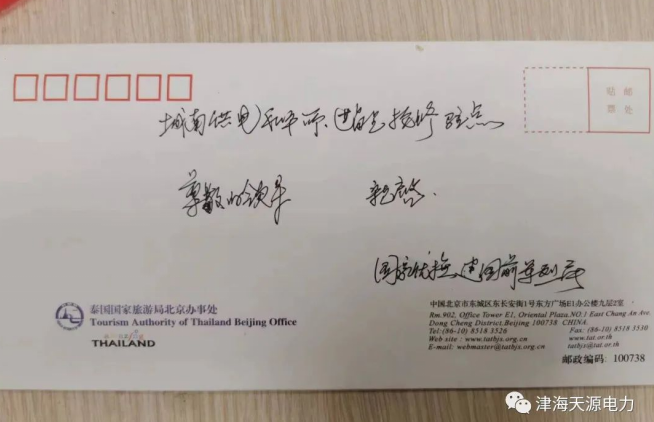 贴 邮
票 处
城南供电和平所
抢修驻点
尊敬的领导
亲启
泰国国家旅游局北京办事处
Tourism Authority of Thailand Beijing Office
THAILAND
中国北京市东城区东长安街1号东方广场E1办公楼九层2室
Rm.902, Office Tower E1, Oriental Plaza,NO.1 East Chang An Ave.
Dong Cheng District,Beijing 100738 CHINA.
Tel:(86-10) 8518 3526 Fax: (86-10) 8518 3530
Web site : www.tatbjs.org.cn www.tat.or.th
E-mail: webmaster@tatbjs.org.cn tatbjs@tat.or.th
邮政编码: 100738
津海天源电力